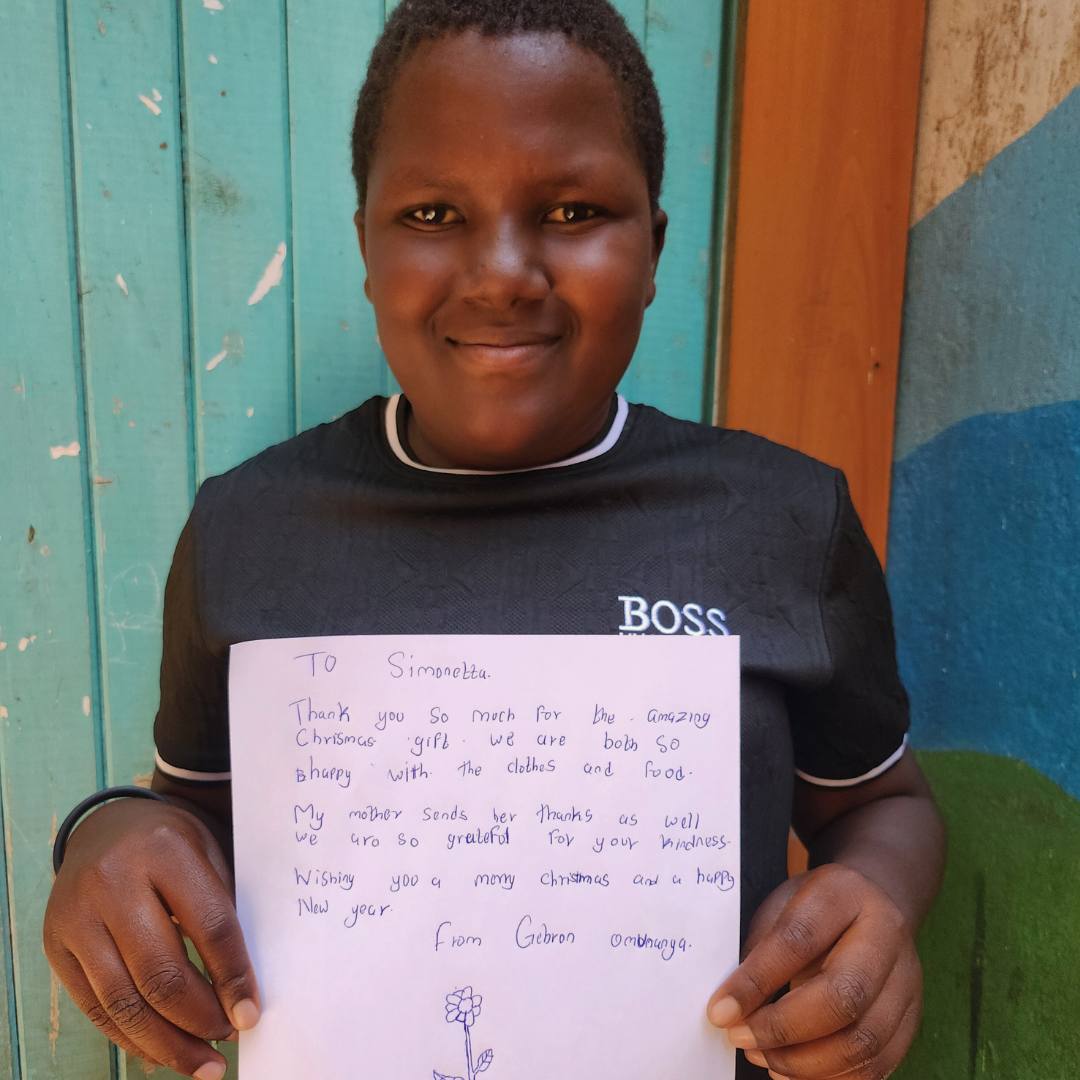 BOSS
TO Simonetta.
Thank you so much for the amazing
Chrismas gift. we are both so
happy with the clothes and food.
My mother sends her thanks as well
we are so grateful for your kindness.
Wishing you a merry christmas and a happy
New year.
From Gebron